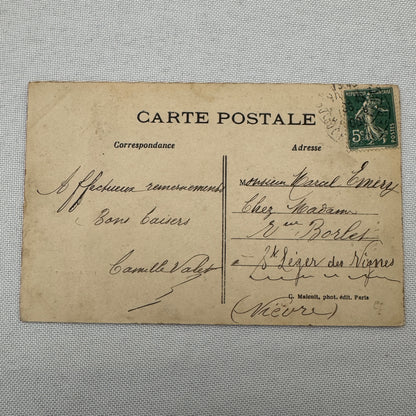 CARTE POSTALE
Correspondance
Adresse
5c
Affectueux remerciements
Bons baisers
Camille
Monsieur Marcel Emery
Chez Madame
Borlet
à St Léger des Vignes
(Nièvre)
C. Malcuit, phot. édit. Paris